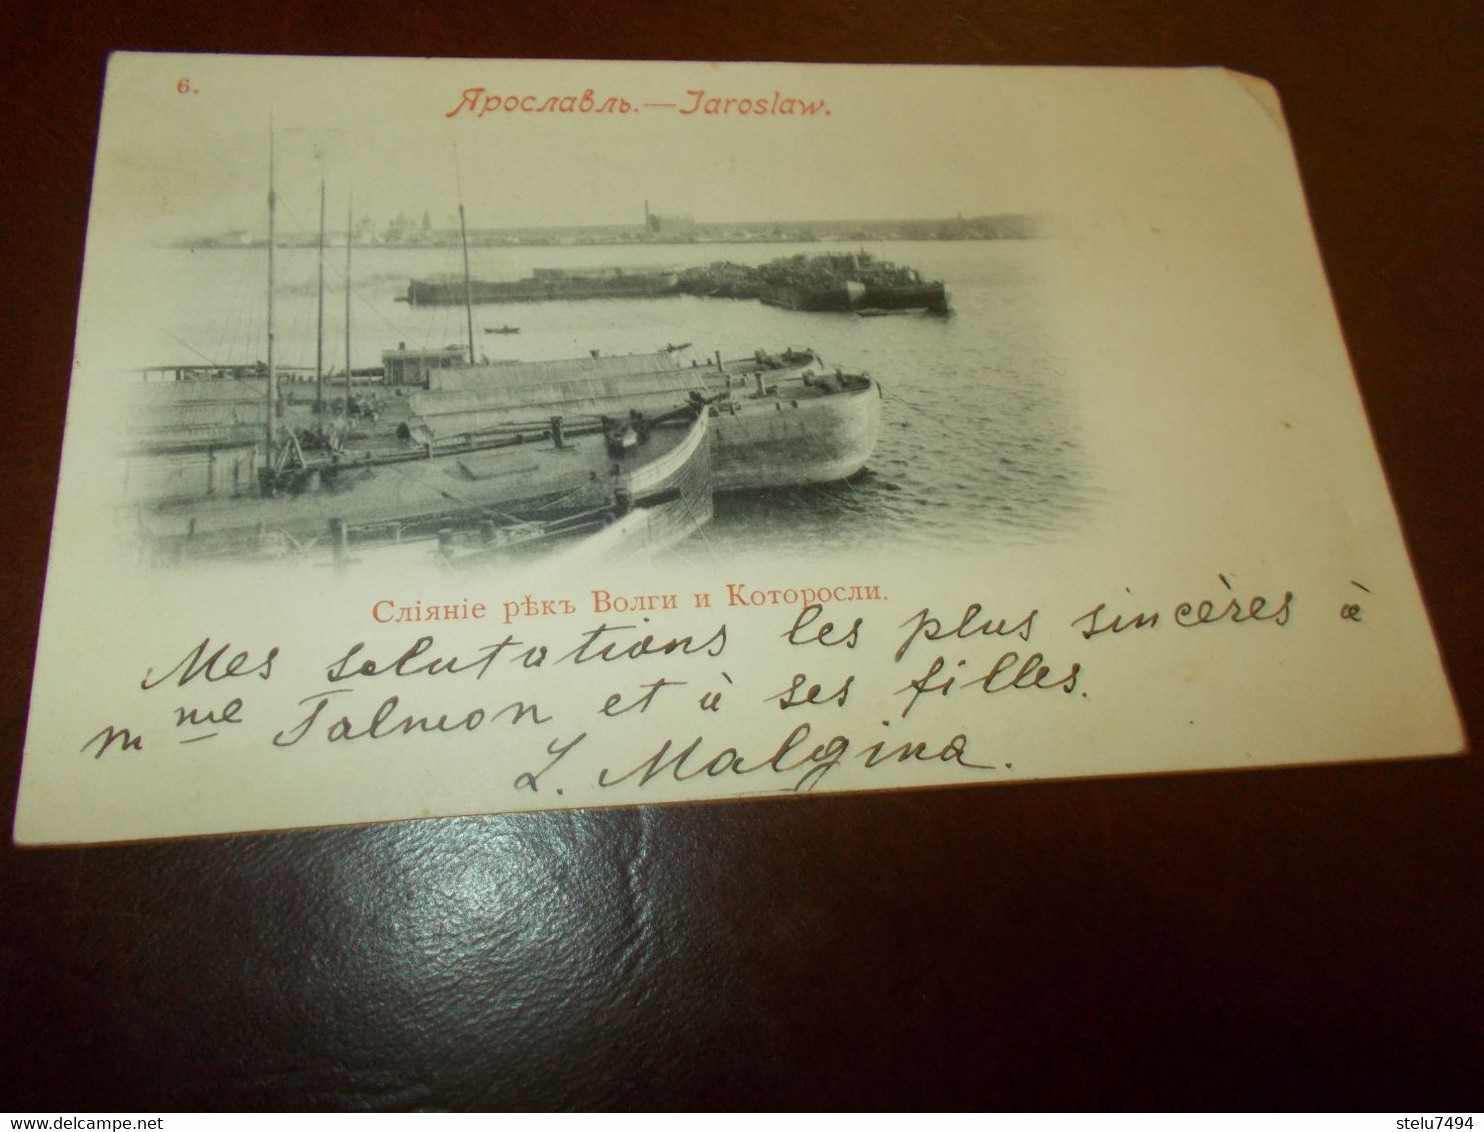 6.
Ярославль.—Jaroslaw.
Слiянiе рѣкъ Волги и Которосли.
Mes salutations les plus sincères à
Mme Talmon et à ses filles.
L. Malgina.
delcampe.net
stelu7494